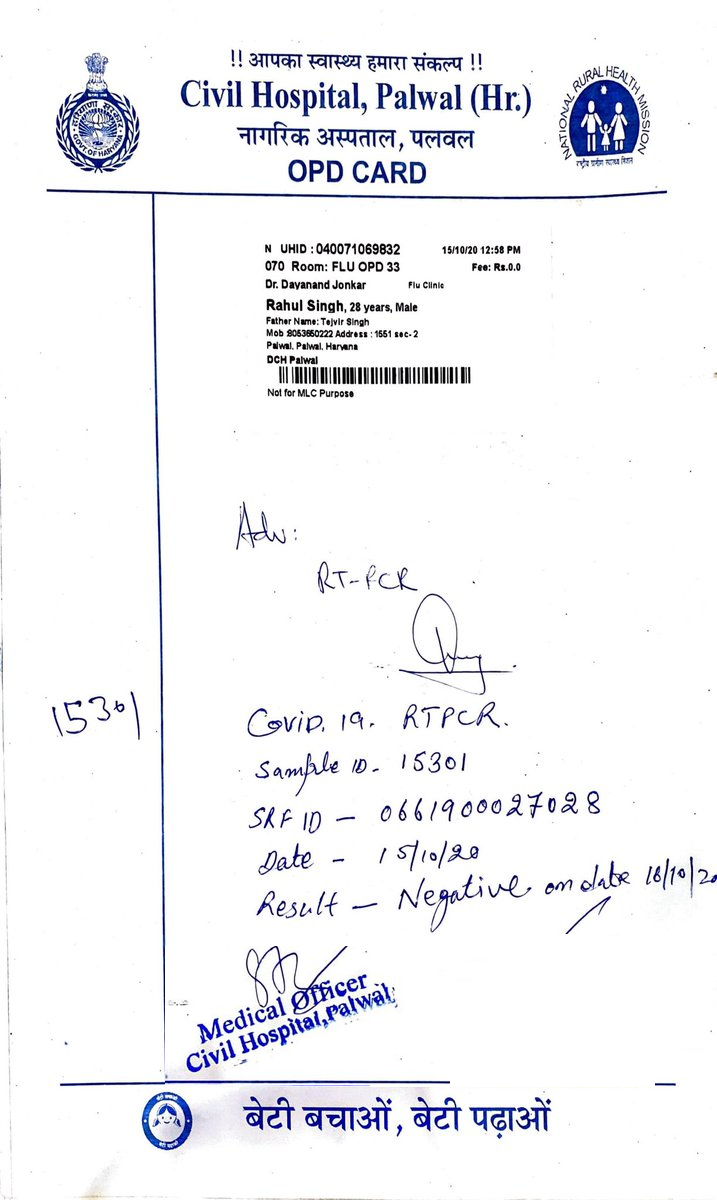 !! आपका स्वास्थ्य हमारा संकल्प !!
Civil Hospital, Palwal (Hr.)
नागरिक अस्पताल, पलवल
OPD CARD
हरियाणा सरकार
GOVT. OF HARYANA
NATIONAL RURAL HEALTH MISSION
राष्ट्रीय ग्रामीण स्वास्थ्य मिशन
N UHID : 040071069832 15/10/20 12:58 PM
070 Room: FLU OPD 33 Fee: Rs.0.0
Dr. Dayanand Jonkar Flu Clinic
Rahul Singh, 28 years, Male
Father Name: Tejvir Singh
Mob :8053650222 Address : 1551 sec- 2
Palwal, Palwal, Haryana
DCH Palwal
Not for MLC Purpose
Adv:
RT-PCR
15301
Covid. 19. RTPCR.
Sample ID - 15301
SRF ID - 0661900027028
Date - 15/10/20
Result - Negative on date 18/10/20
Medical Officer
Civil Hospital,Palwal
बेटी बचाओ
बेटी पढ़ाओ
बेटी बचाओं, बेटी पढ़ाओं